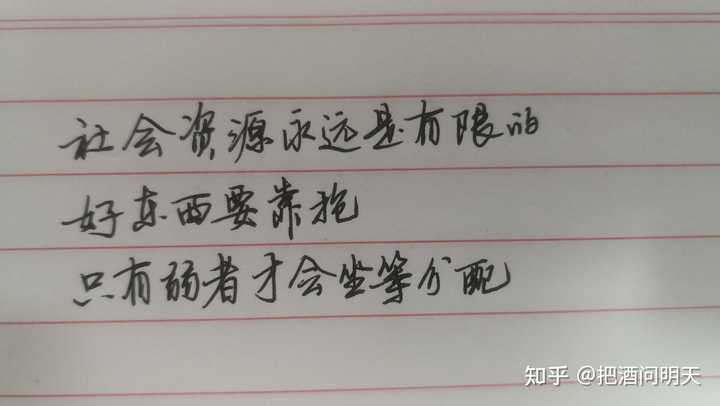 社会资源永远是有限的
好东西要靠抢
只有弱者才会坐等分配
知乎 @把酒问明天